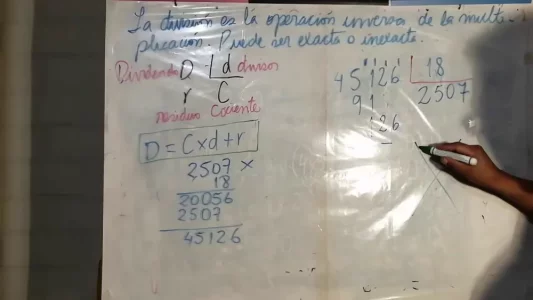 La división es la operación inversa de la multi-
plicación. Puede ser exacta o inexacta.
Dividendo D d divisor
r C
residuo Cociente
D = C x d + r
2507 x
18
20056
2507
45126
45126 18
91 2507
126